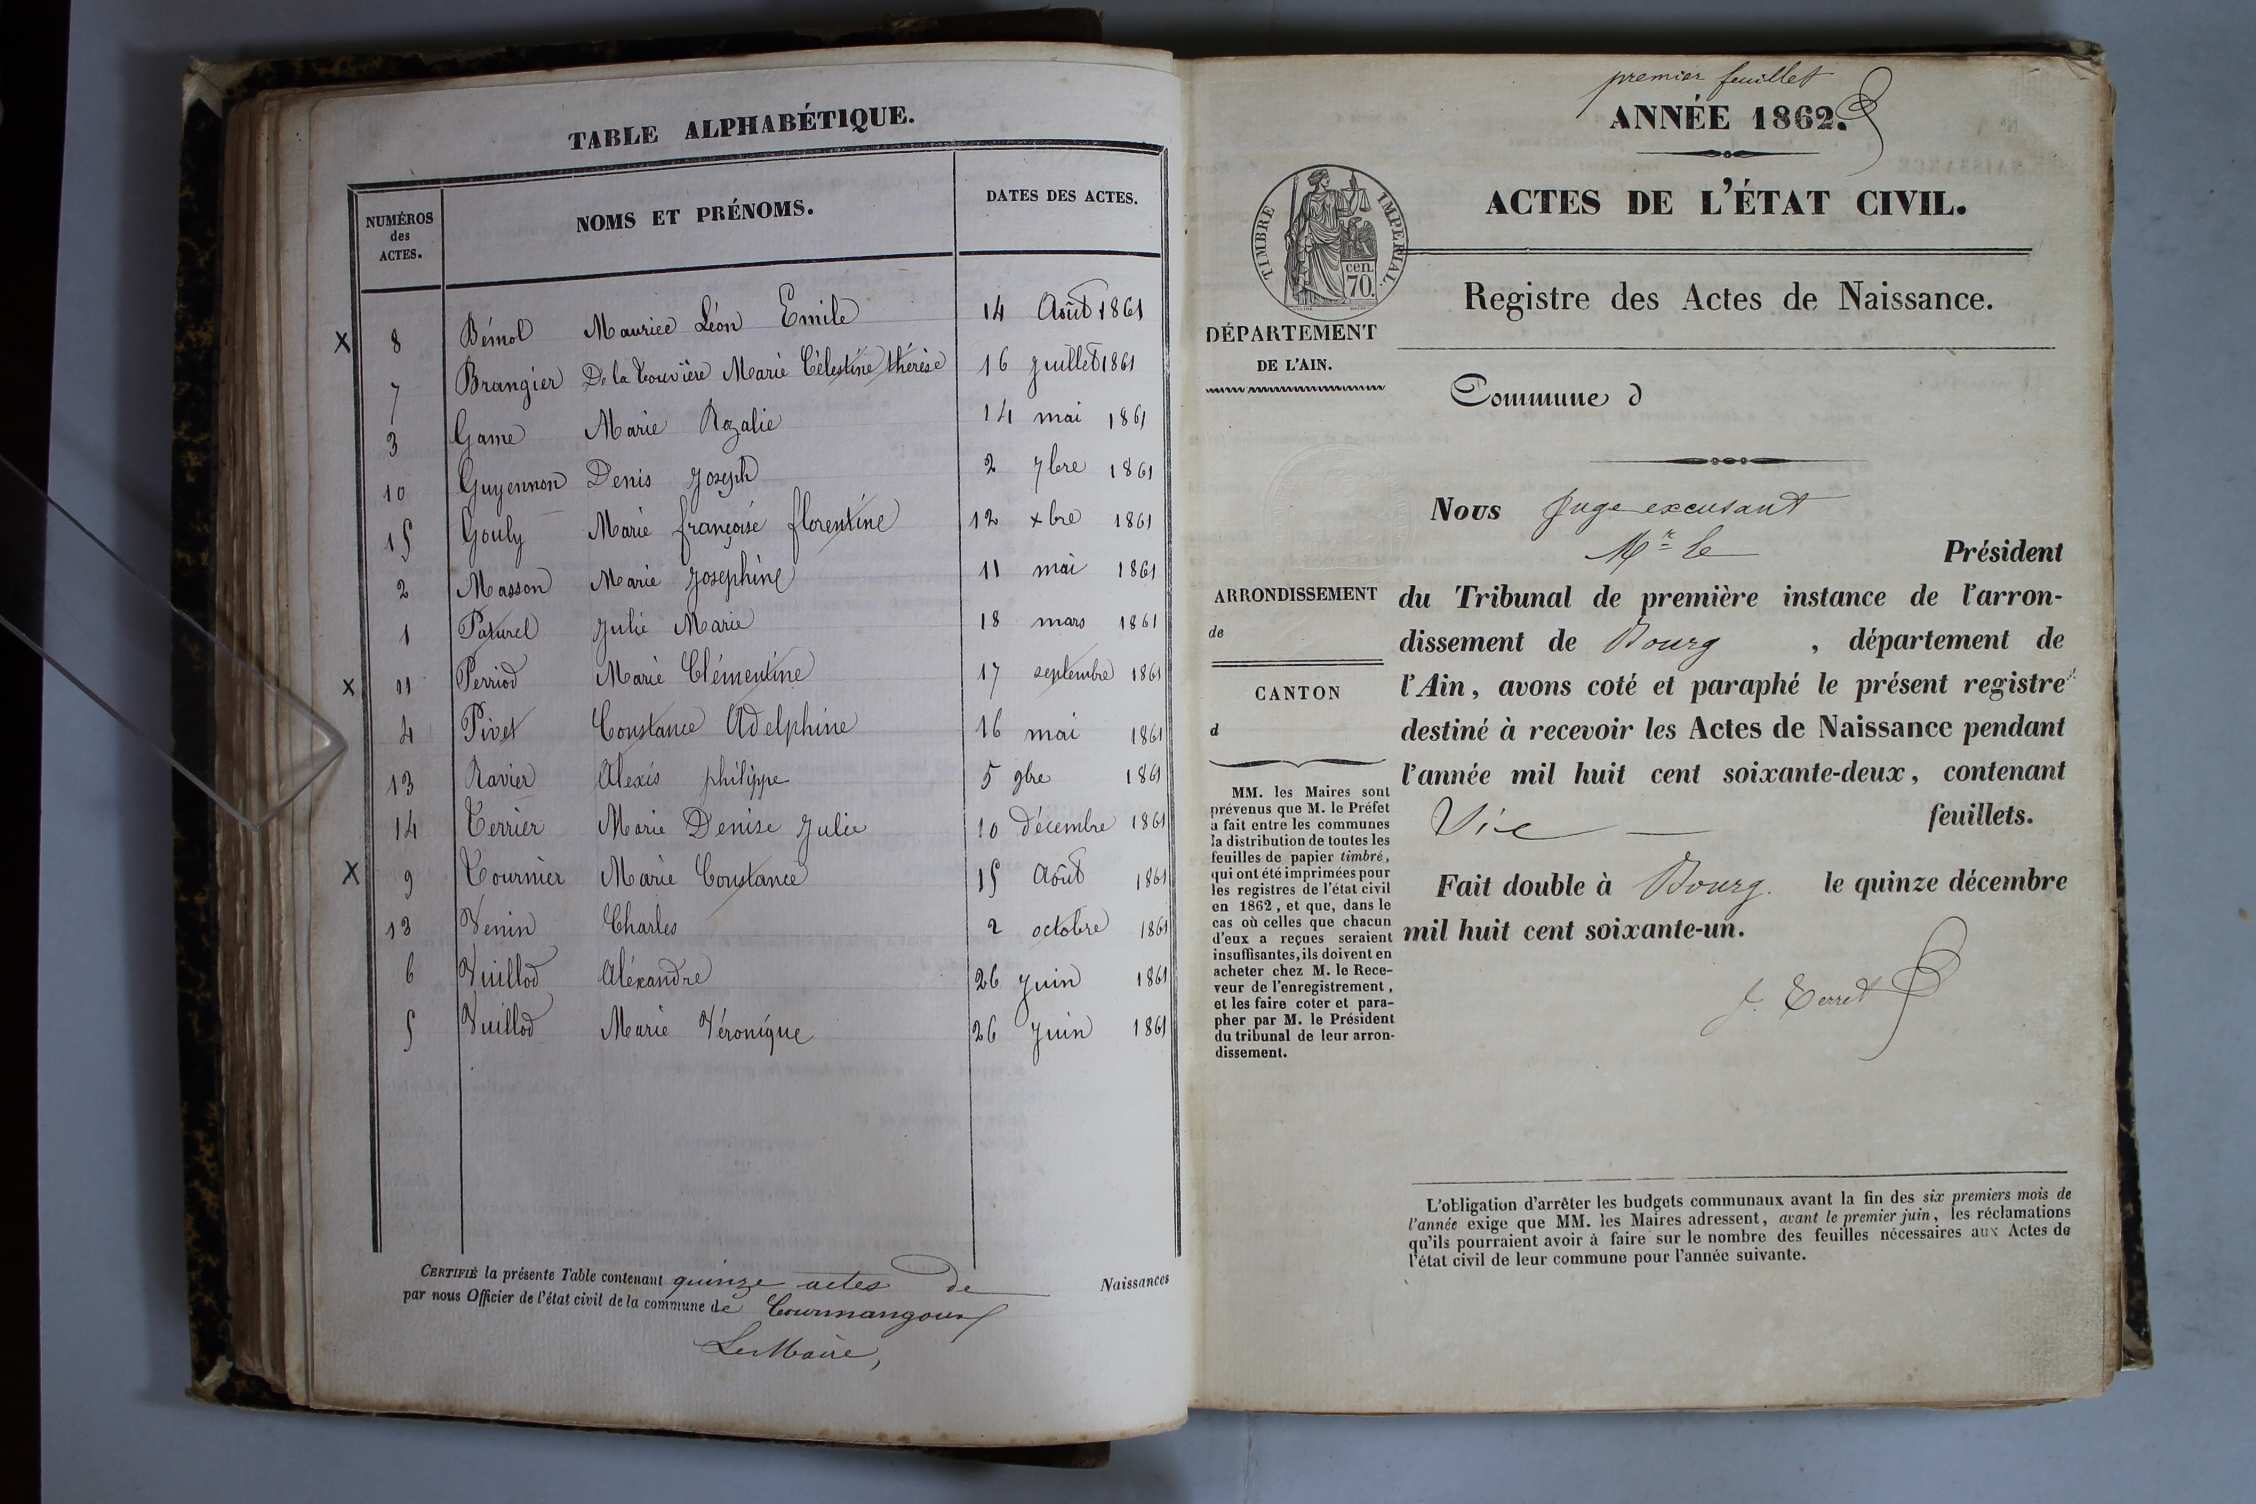 TABLE ALPHABÉTIQUE.
NUMÉROS
des
ACTES.
NOMS ET PRÉNOMS.
DATES DES ACTES.
X 8 Bémol Maurice Léon Emile 14 Août 1861
7 Brangier De la Couvière Marie Célestine thérèse 16 juillet 1861
3 Game Marie Rozalie 14 mai 1861
10 Guyennon Denis Joseph 2 7bre 1861
15 Gouly Marie françoise florentine 12 xbre 1861
2 Masson Marie Josephine 11 mai 1861
1 Paturel Julie Marie 18 mars 1861
X 11 Perriod Marie Clémentine 17 septembre 1861
4 Pivet Constance Adelphine 16 mai 1861
13 Ravier Alexis philippe 5 9bre 1861
14 Terrier Marie Denise Julie 10 décembre 1861
X 9 Tournier Marie Constance 15 Août 1861
13 Venin Charles 2 octobre 1861
6 Vuillod Aléxandre 26 juin 1861
5 Vuillod Marie Véronique 26 juin 1861
CERTIFIÉ la présente Table contenant quinze actes de Naissances
par nous Officier de l'état civil de la commune de Courmangoux
Le Maire,
premier feuillet
ANNÉE 1862.
ACTES DE L'ÉTAT CIVIL.
TIMBRE IMPERIAL.
cen.
70.
Registre des Actes de Naissance.
DÉPARTEMENT
DE L'AIN.
Commune d
Nous Juge excusant
Mr le Président
ARRONDISSEMENT
de
CANTON
d
du Tribunal de première instance de l'arron-
dissement de Bourg , département de
l'Ain, avons coté et paraphé le présent registre
destiné à recevoir les Actes de Naissance pendant
l'année mil huit cent soixante-deux, contenant
Six feuillets.
Fait double à Bourg. le quinze décembre
mil huit cent soixante-un.
J. Terret
MM. les Maires sont
prévenus que M. le Préfet
a fait entre les communes
la distribution de toutes les
feuilles de papier timbré,
qui ont été imprimées pour
les registres de l'état civil
en 1862, et que, dans le
cas où celles que chacun
d'eux a reçues seraient
insuffisantes, ils doivent en
acheter chez M. le Rece-
veur de l'enregistrement,
et les faire coter et para-
pher par M. le Président
du tribunal de leur arron-
dissement.
L'obligation d'arrêter les budgets communaux avant la fin des six premiers mois de
l'année exige que MM. les Maires adressent, avant le premier juin, les réclamations
qu'ils pourraient avoir à faire sur le nombre des feuilles nécessaires aux Actes de
l'état civil de leur commune pour l'année suivante.